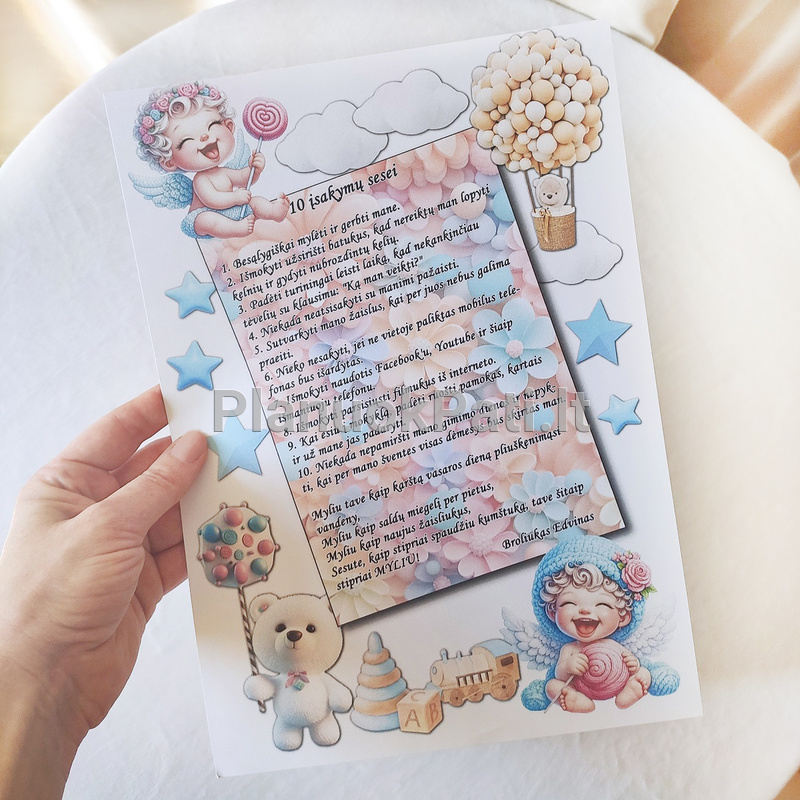 10 įsakymų sesei
1. Besąlygiškai mylėti ir gerbti mane.
2. Išmokyti užsirišti batukus, kad nereiktų man lopyti
kelnių ir gydyti nubrozdintų kelių.
3. Padėti turiningai leisti laiką, kad nekankinčiau
tėvelių su klausimu: "Ką man veikti?"
4. Niekada neatsisakyti su manimi pažaisti.
5. Sutvarkyti mano žaislus, kai per juos nebus galima
praeiti.
6. Nieko nesakyti, jei ne vietoje paliktas mobilus tele-
fonas bus išardytas.
7. Išmokyti naudotis Facebook'u, Youtube ir šiaip
išmaniuoju telefonu.
8. Išmokyti parsisiųsti filmukus iš interneto.
9. Kai eisiu į mokyklą, padėti ruošti pamokas, kartais
ir už mane jas padaryti.
10. Niekada nepamiršti mano gimimo dienos ir nepyk-
ti, kai per mano šventes visas dėmesys bus skiriamas man.
Myliu tave kaip karštą vasaros dieną pliuškenimąsi
vandeny,
Myliu kaip saldų miegelį per pietus,
Myliu kaip naujus žaisliukus,
Sesute, kaip stipriai spaudžiu kumštuką, tave šitaip
stipriai MYLIU!
Broliukas Edvinas
PlanuokPati.lt
A B